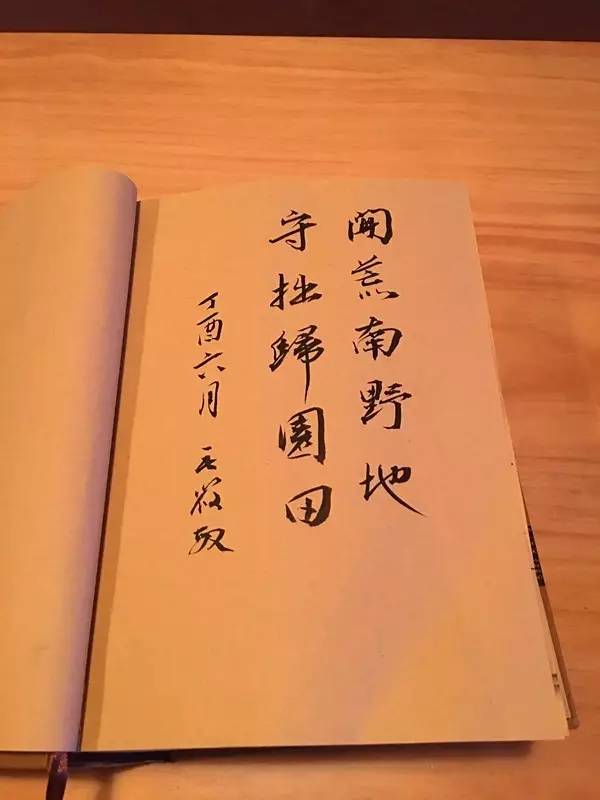 開荒南野地
守拙歸園田
丁酉六月